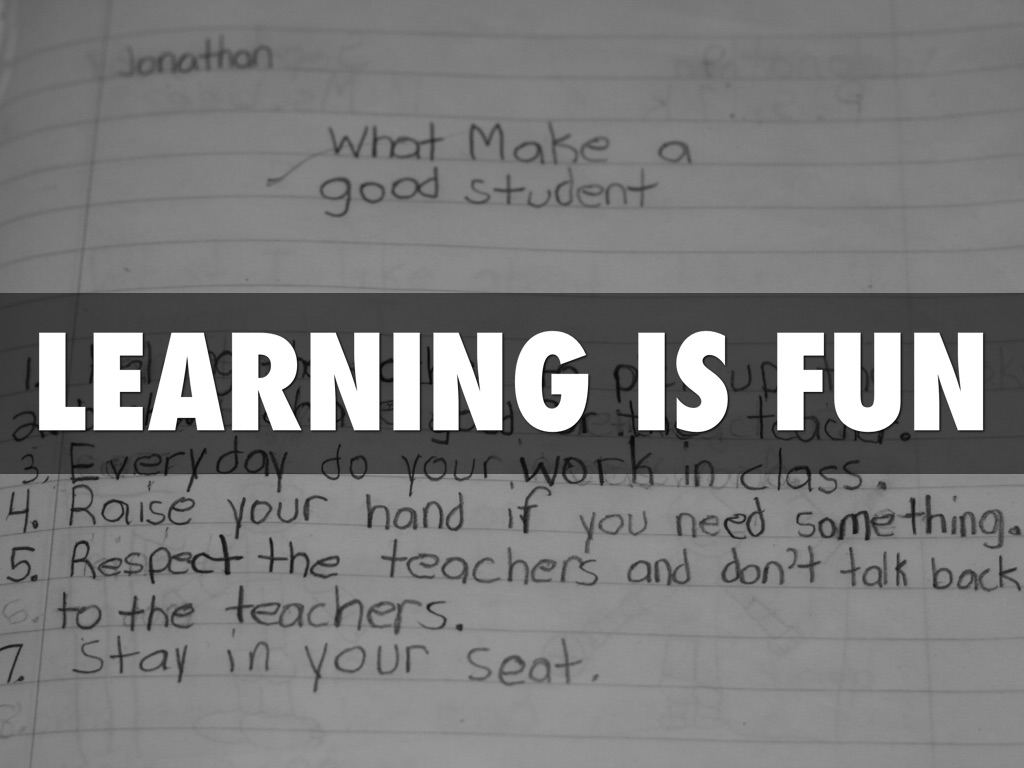 Jonathan
What Make a
good student
LEARNING IS FUN
1.
2. teacher.
3. Everyday do your work in class.
4. Raise your hand if you need something.
5. Respect the teachers and don't talk back
6. to the teachers.
7. Stay in your seat.
8.